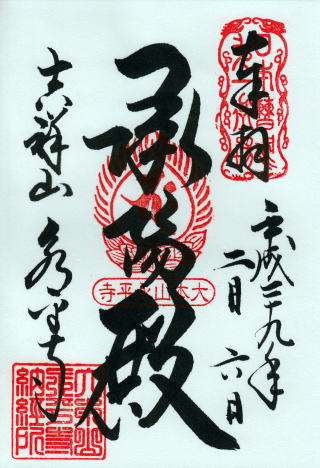 奉拝
平成二十九年
二月六日
承陽殿
大本山永平寺
吉祥山永平寺
大本山
永平寺
納経所